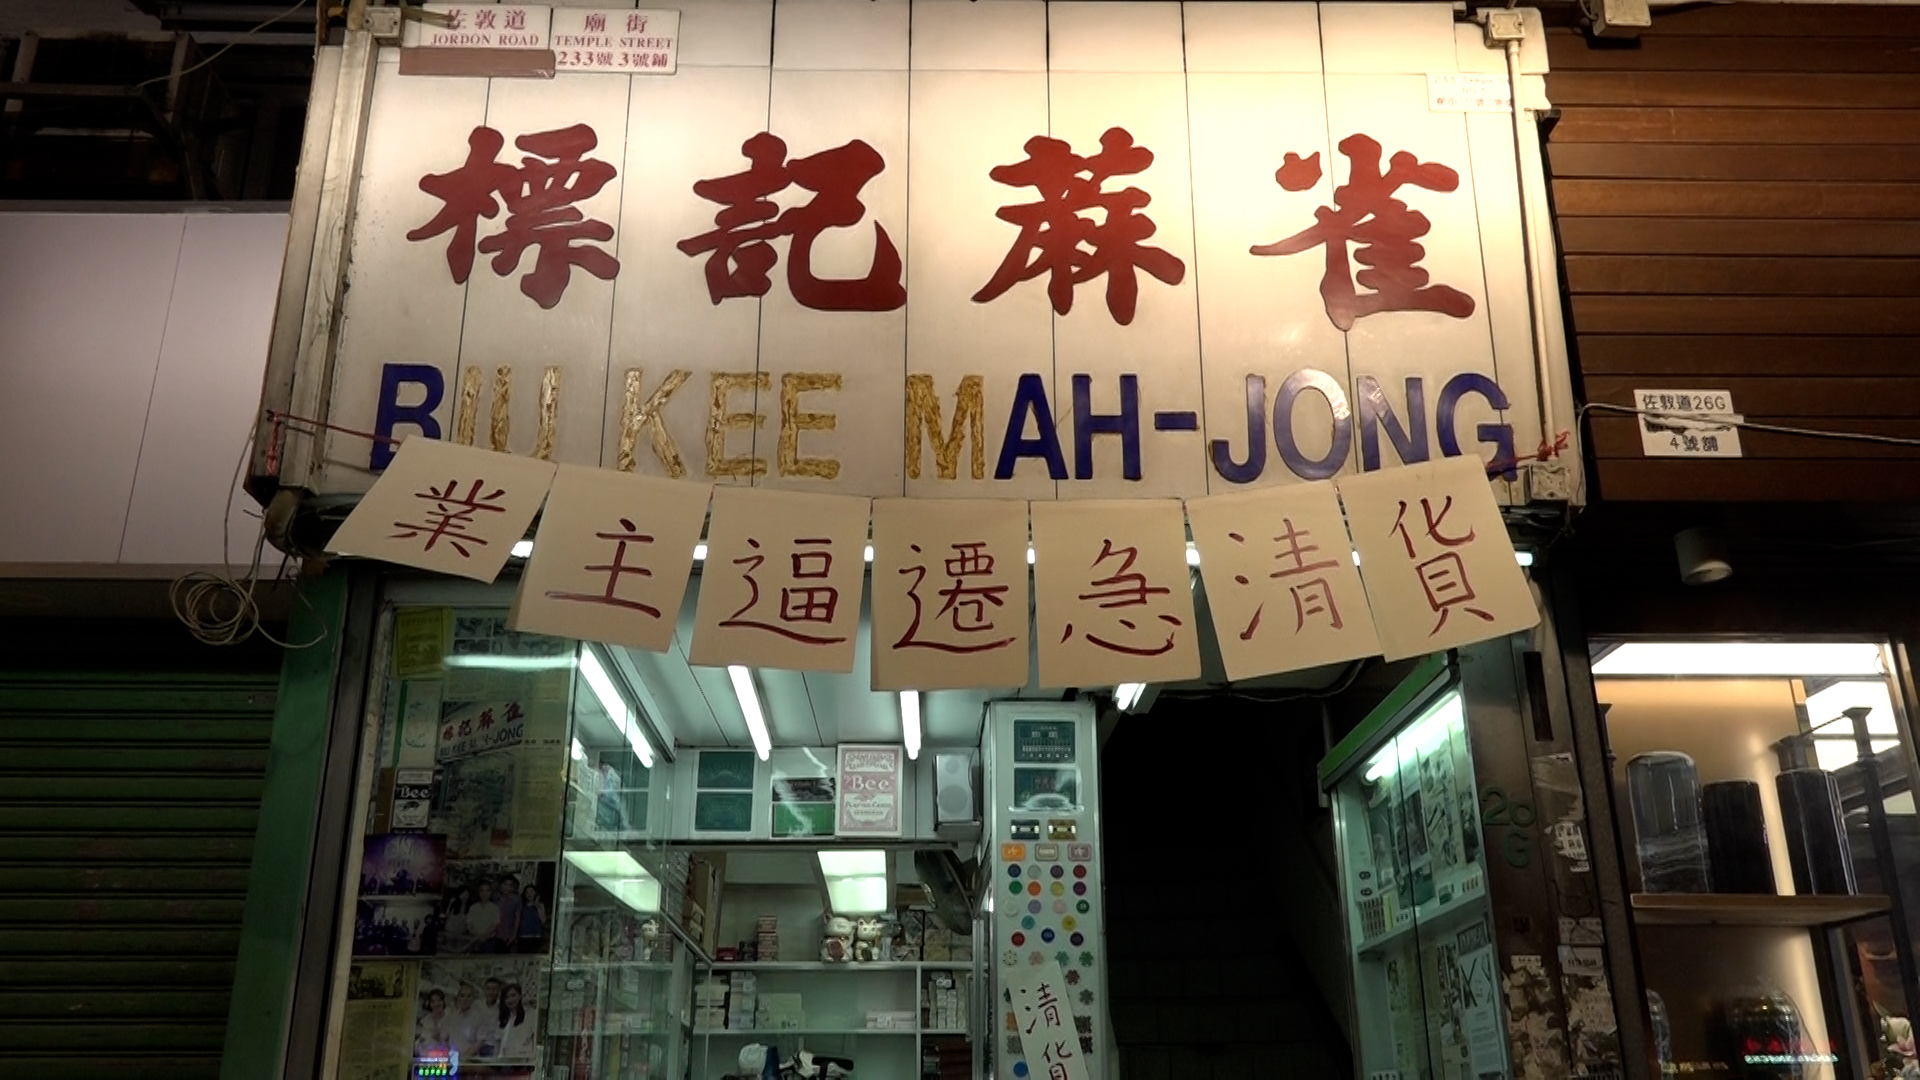 佐敦道
JORDON ROAD
廟街
TEMPLE STREET
233號 3號鋪
標記蔴雀
BIU KEE MAH-JONG
佐敦道26G
4號舖
業主逼遷急清貨
標記蔴雀
Bee
Bee
PLAYING CARDS
26
G
清貨